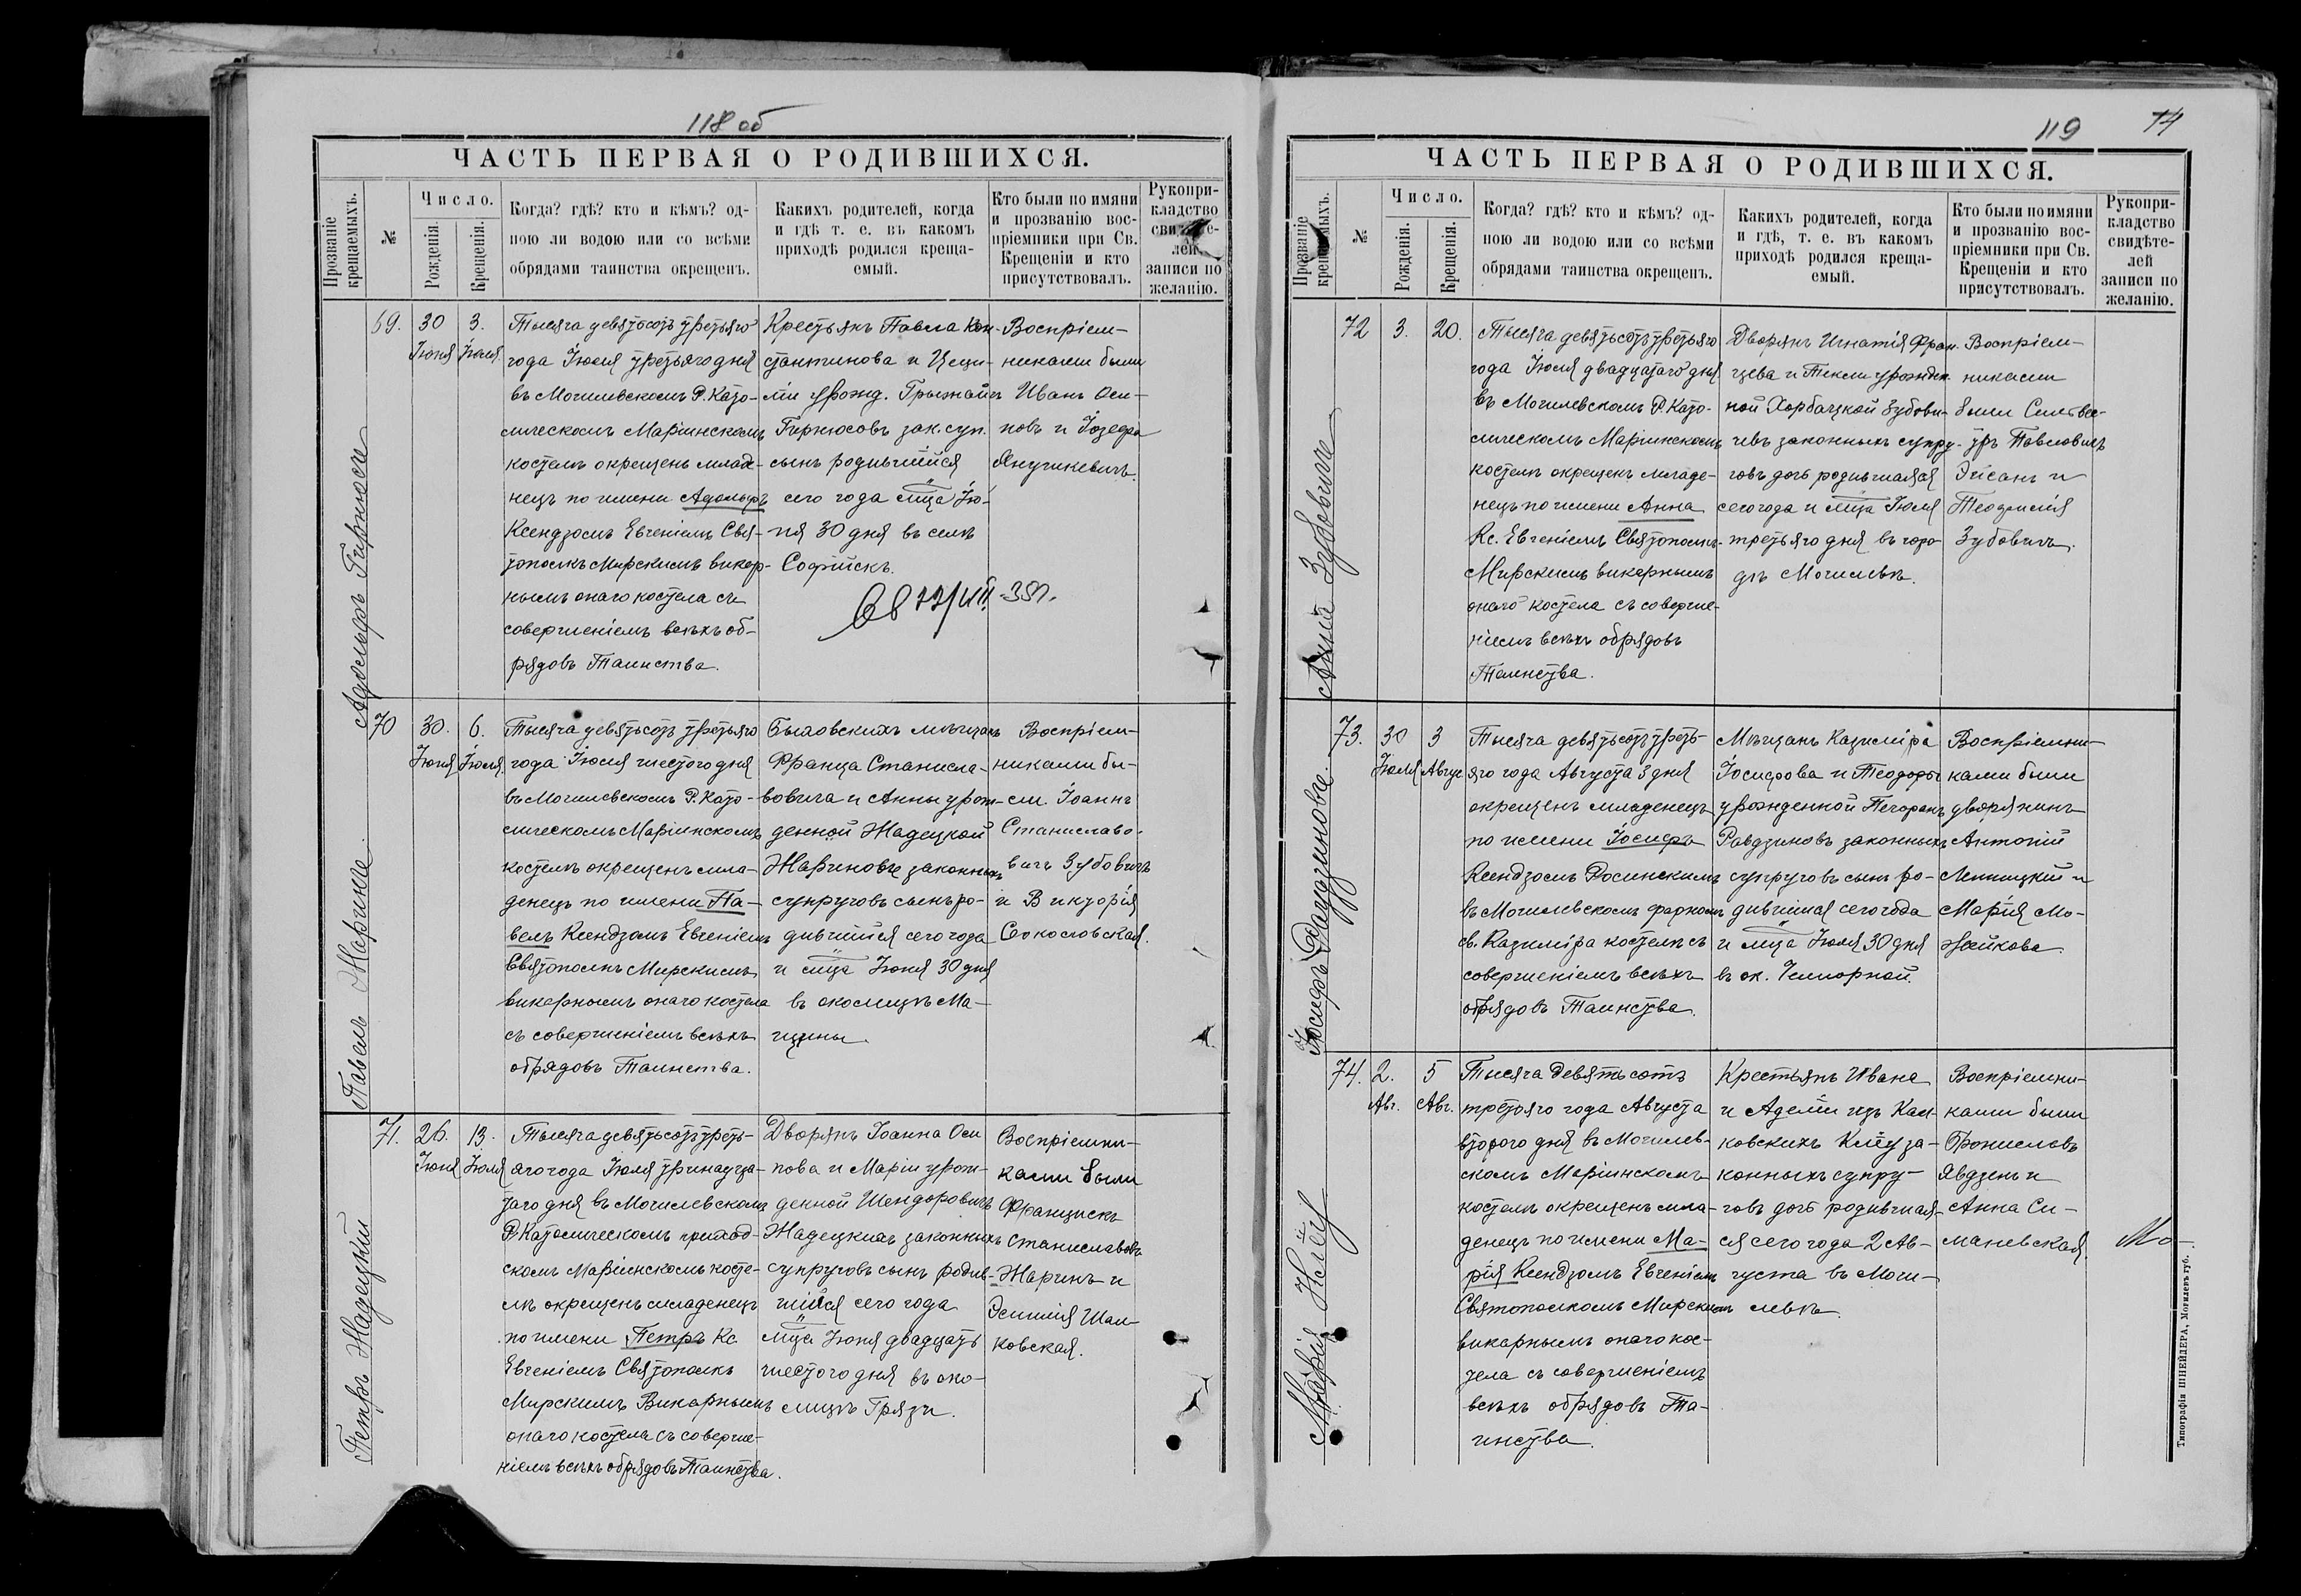 118 об
ЧАСТЬ ПЕРВАЯ О РОДИВШИХСЯ.
Прозваніе крещаемыхъ.
№
Число.
Рожденія.
Крещенія.
Когда? гдѣ? кто и кѣмъ? од-
ною ли водою или со всѣми
обрядами таинства окрещенъ.
Какихъ родителей, когда
и гдѣ т. е. въ какомъ
приходѣ родился креща-
емый.
Кто были по имяни
и прозванію вос-
пріемники при Св.
Крещеніи и кто
присутствовалъ.
Рукопри-
кладство
свидѣте-
лей
записи по
желанію.
Адольфъ Гирнюсъ
69.
30
Іюня
3.
Іюля.
Тысяча девятьсотъ третьяго
года Іюля третьяго дня
въ Могилевскомъ Р. Като-
лическомъ Маріинскомъ
костелѣ окрещенъ младе-
нецъ по имени Адольфъ
Ксендзомъ Евгеніемъ Свя-
тополкъ Мирскимъ викар-
нымъ онаго костела съ
совершеніемъ всѣхъ об-
рядовъ Таинства.
Крестьянъ Павла Кон-
стантинова и Цеци-
ліи урожд.
Гирнюсовъ зак. суп.
сынъ родившійся
сего года мца Ію-
ня 30 дня въ селѣ
Софійскъ.
Воспріем-
никами были
Иванъ Оси-
повъ и Іозефа
Янушкевичъ.
Павелъ Жаринъ.
70
30.
Іюня
6.
Іюля.
Тысяча девятьсотъ третьяго
года Іюля шестого дня
въ Могилевскомъ Р. Като-
лическомъ Маріинскомъ
костелѣ окрещенъ мла-
денецъ по имени Па-
велъ Ксендзомъ Евгеніемъ
Святополкъ Мирскимъ
викарнымъ онаго костела
съ совершеніемъ всѣхъ
обрядовъ Таинства.
Быховскихъ мѣщанъ
Франца Станисла-
вовича и Анны урож-
денной Жадецкой
Жариновъ законныхъ
супруговъ сынъ ро-
дившійся сего года
и мца Іюня 30 дня
въ околицѣ Ма-
щины.
Воспріем-
никами бы-
ли Іоаннъ
Станиславо-
вичъ Зубовичъ
и Викторія
Соколовская.
Петръ Жадецкій
71.
26.
Іюня
13.
Іюля
Тысяча девятьсотъ треть-
яго года Іюля тринадца-
таго дня въ Могилевскомъ
Р. Католическомъ приход-
скомъ Маріинскомъ косте-
лѣ окрещенъ младенецъ
по имени Петръ Кс.
Евгеніемъ Святополкъ
Мирскимъ Викарнымъ
онаго костела съ соверше-
ніемъ всѣхъ обрядовъ Таинства.
Дворянъ Іоанна Оси
пова и Маріи урож-
денной Шендоровичъ
Жадецкихъ законныхъ
супруговъ сынъ родив-
шійся сего года
мца Іюня двадцать
шестого дня въ око-
лицѣ Грязи.
Воспріемни-
ками были
Францискъ
Станиславовъ
Жаринъ и
Эмилія Шан-
ковская.
119
ЧАСТЬ ПЕРВАЯ О РОДИВШИХСЯ.
Прозваніе крещаемыхъ.
№
Число.
Рожденія.
Крещенія.
Когда? гдѣ? кто и кѣмъ? од-
ною ли водою или со всѣми
обрядами таинства окрещенъ.
Какихъ родителей, когда
и гдѣ, т. е. въ какомъ
приходѣ родился креща-
емый.
Кто были по имяни
и прозванію вос-
пріемники при Св.
Крещеніи и кто
присутствовалъ.
Рукопри-
кладство
свидѣте-
лей
записи по
желанію.
Анна Зубовичъ
72
3.
20.
Тысяча девятьсотъ третьяго
года Іюля двадцатаго дня
въ Могилевскомъ Р. Като-
лическомъ Маріинскомъ
костелѣ окрещенъ младе-
нецъ по имени Анна
Кс. Евгеніемъ Святополкъ-
Мирскимъ викарнымъ
онаго костела съ соверше-
ніемъ всѣхъ обрядовъ
Таинства.
Дворянъ Игнатія Фран-
цева и Теклы урожден-
ной Хорбацкой Зубови-
чевъ законныхъ супру-
говъ дочь родившаяся
сего года и мца Іюля
третьяго дня въ горо-
дѣ Могилевѣ.
Воспріем-
никами
были Сильвес-
тръ Павловичъ
Эйсанъ и
Теофилія
Зубовичъ.
Іосифъ Равдзиновъ.
73.
30
Іюля
3
Август
Тысяча девятьсотъ треть-
яго года Августа 3 дня
окрещенъ младенецъ
по имени Іосифъ
Ксендзомъ Росинскимъ
въ Могилевскомъ фарномъ
св. Казиміра костелѣ съ
совершеніемъ всѣхъ
обрядовъ Таинства.
Мѣщанъ Казиміра
Іосифова и Теодоры
урожденной Печоранъ
Равдзиновъ законныхъ
супруговъ сынъ ро-
дившійся сего года
и мца Іюля 30 дня
въ ок. Чемиорной.
Воспріемни-
ками были
дворянинъ
Антоній
Липницкій и
Марія Мо-
жейкова.
Марія Клёц
74.
2.
Авг.
5
Авг.
Тысяча девятьсотъ
третьяго года Августа
второго дня въ Могилев-
скомъ Маріинскомъ
костелѣ окрещенъ мла-
денецъ по имени Ма-
рія Ксендзомъ Евгеніемъ
Святополкомъ Мирскимъ
викарнымъ онаго кос-
тела съ совершеніемъ
всѣхъ обрядовъ Та-
инства.
Крестьянъ Ивана
и Аделіи изъ
за-
конныхъ супру-
говъ дочь родившая-
ся сего года 2 Ав-
густа въ Моги-
левѣ.
Воспріемни-
ками были
Брониславъ
Явдзенъ и
Анна Си-
маневская.
Типографія ШНЕЙДЕРА, Могилевъ губ.